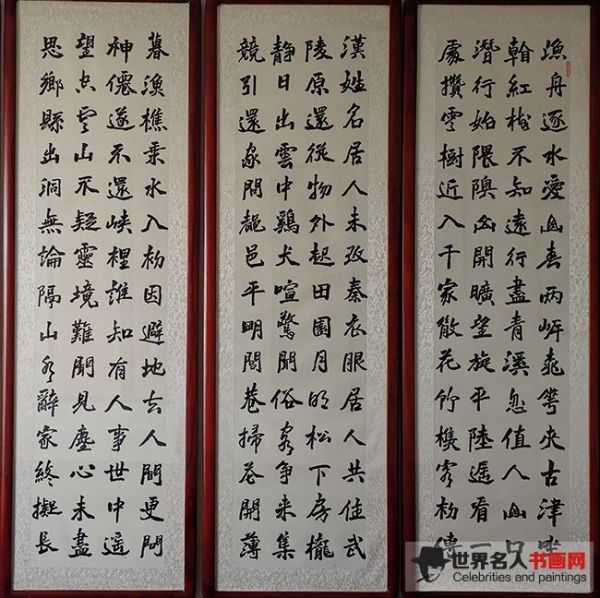 漁舟逐水愛山春兩岸桃花夾古津坐
翰紅樹不知遠行盡青溪忽值人山口
潛行始隈隩山開曠望旋平陸遥看一
處攢雲樹近入千家散花竹樵客初傳
漢姓名居人未改秦衣服居人共住武
陵原還從物外起田園月明松下房櫳
靜日出雲中鷄犬喧驚聞俗客爭來集
競引還家問都邑平明閭巷掃花開薄
暮漁樵乘水入初因避地去人間更問
神僊遂不還峽裡誰知有人事世中遥
望空雲山不疑靈境難聞見塵心未盡
思鄉縣出洞無論隔山水辭家終擬長
世界名人书画网
Celebrities and paintings